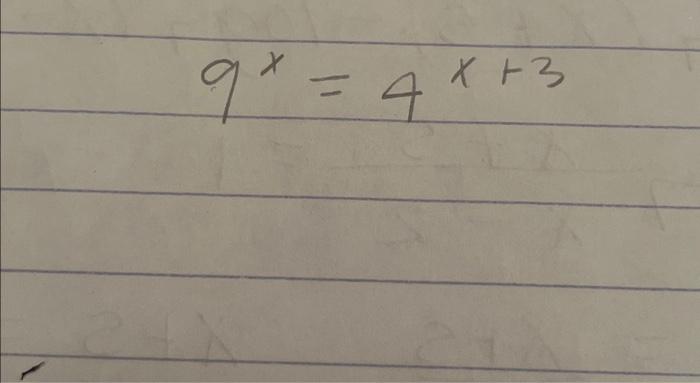 9^x = 4^{x+3}